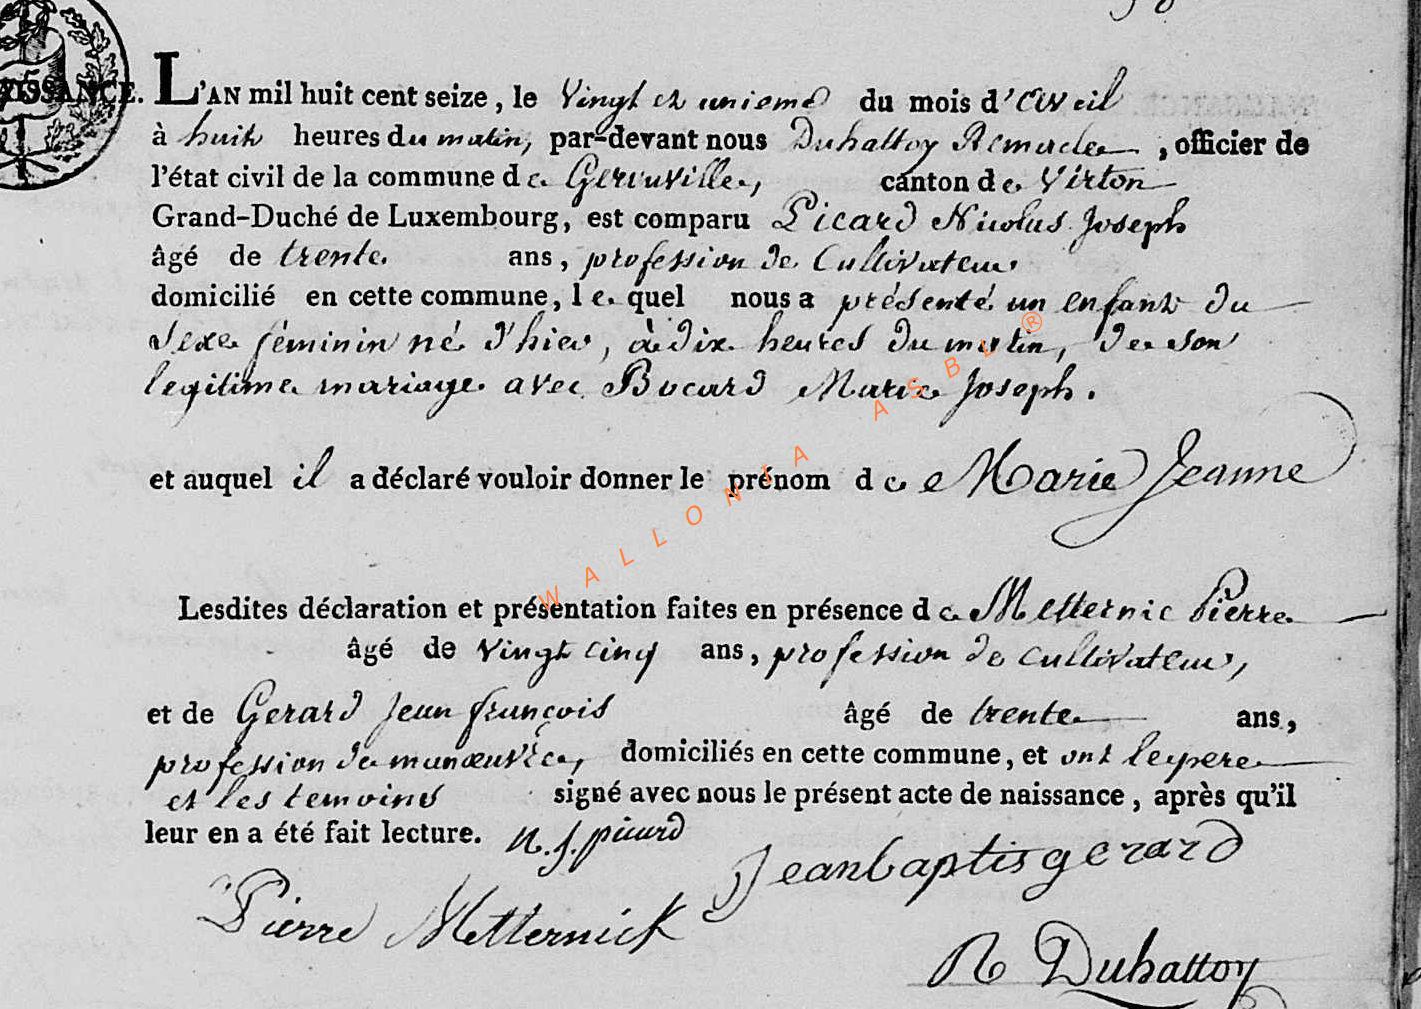 NAISSANCE.
L'AN mil huit cent seize, le vingt et unieme du mois d'avril
à huit heures du matin, par-devant nous Duhattoy Remacle, officier de
l'état civil de la commune de Gerouville, canton de Virton
Grand-Duché de Luxembourg, est comparu Picard Nicolas Joseph
âgé de trente ans, profession de Cultivateur
domicilié en cette commune, lequel nous a présenté un enfant du
sexe féminin né d'hier, à dix heures du matin, de son
legitime mariage avec Bocard Marie Joseph.
et auquel il a déclaré vouloir donner le prénom de Marie Jeanne
Lesdites déclaration et présentation faites en présence de Metternic Pierre
âgé de vingt cinq ans, profession de cultivateur,
et de Gerard Jean françois âgé de trente ans,
profession de manœuvre, domiciliés en cette commune, et ont le pere
et les temoins signé avec nous le présent acte de naissance, après qu'il
leur en a été fait lecture. N. J. picard
Jean baptis gerard
Pierre Metternick
R Duhattoy
WALLONIA ASBL ®